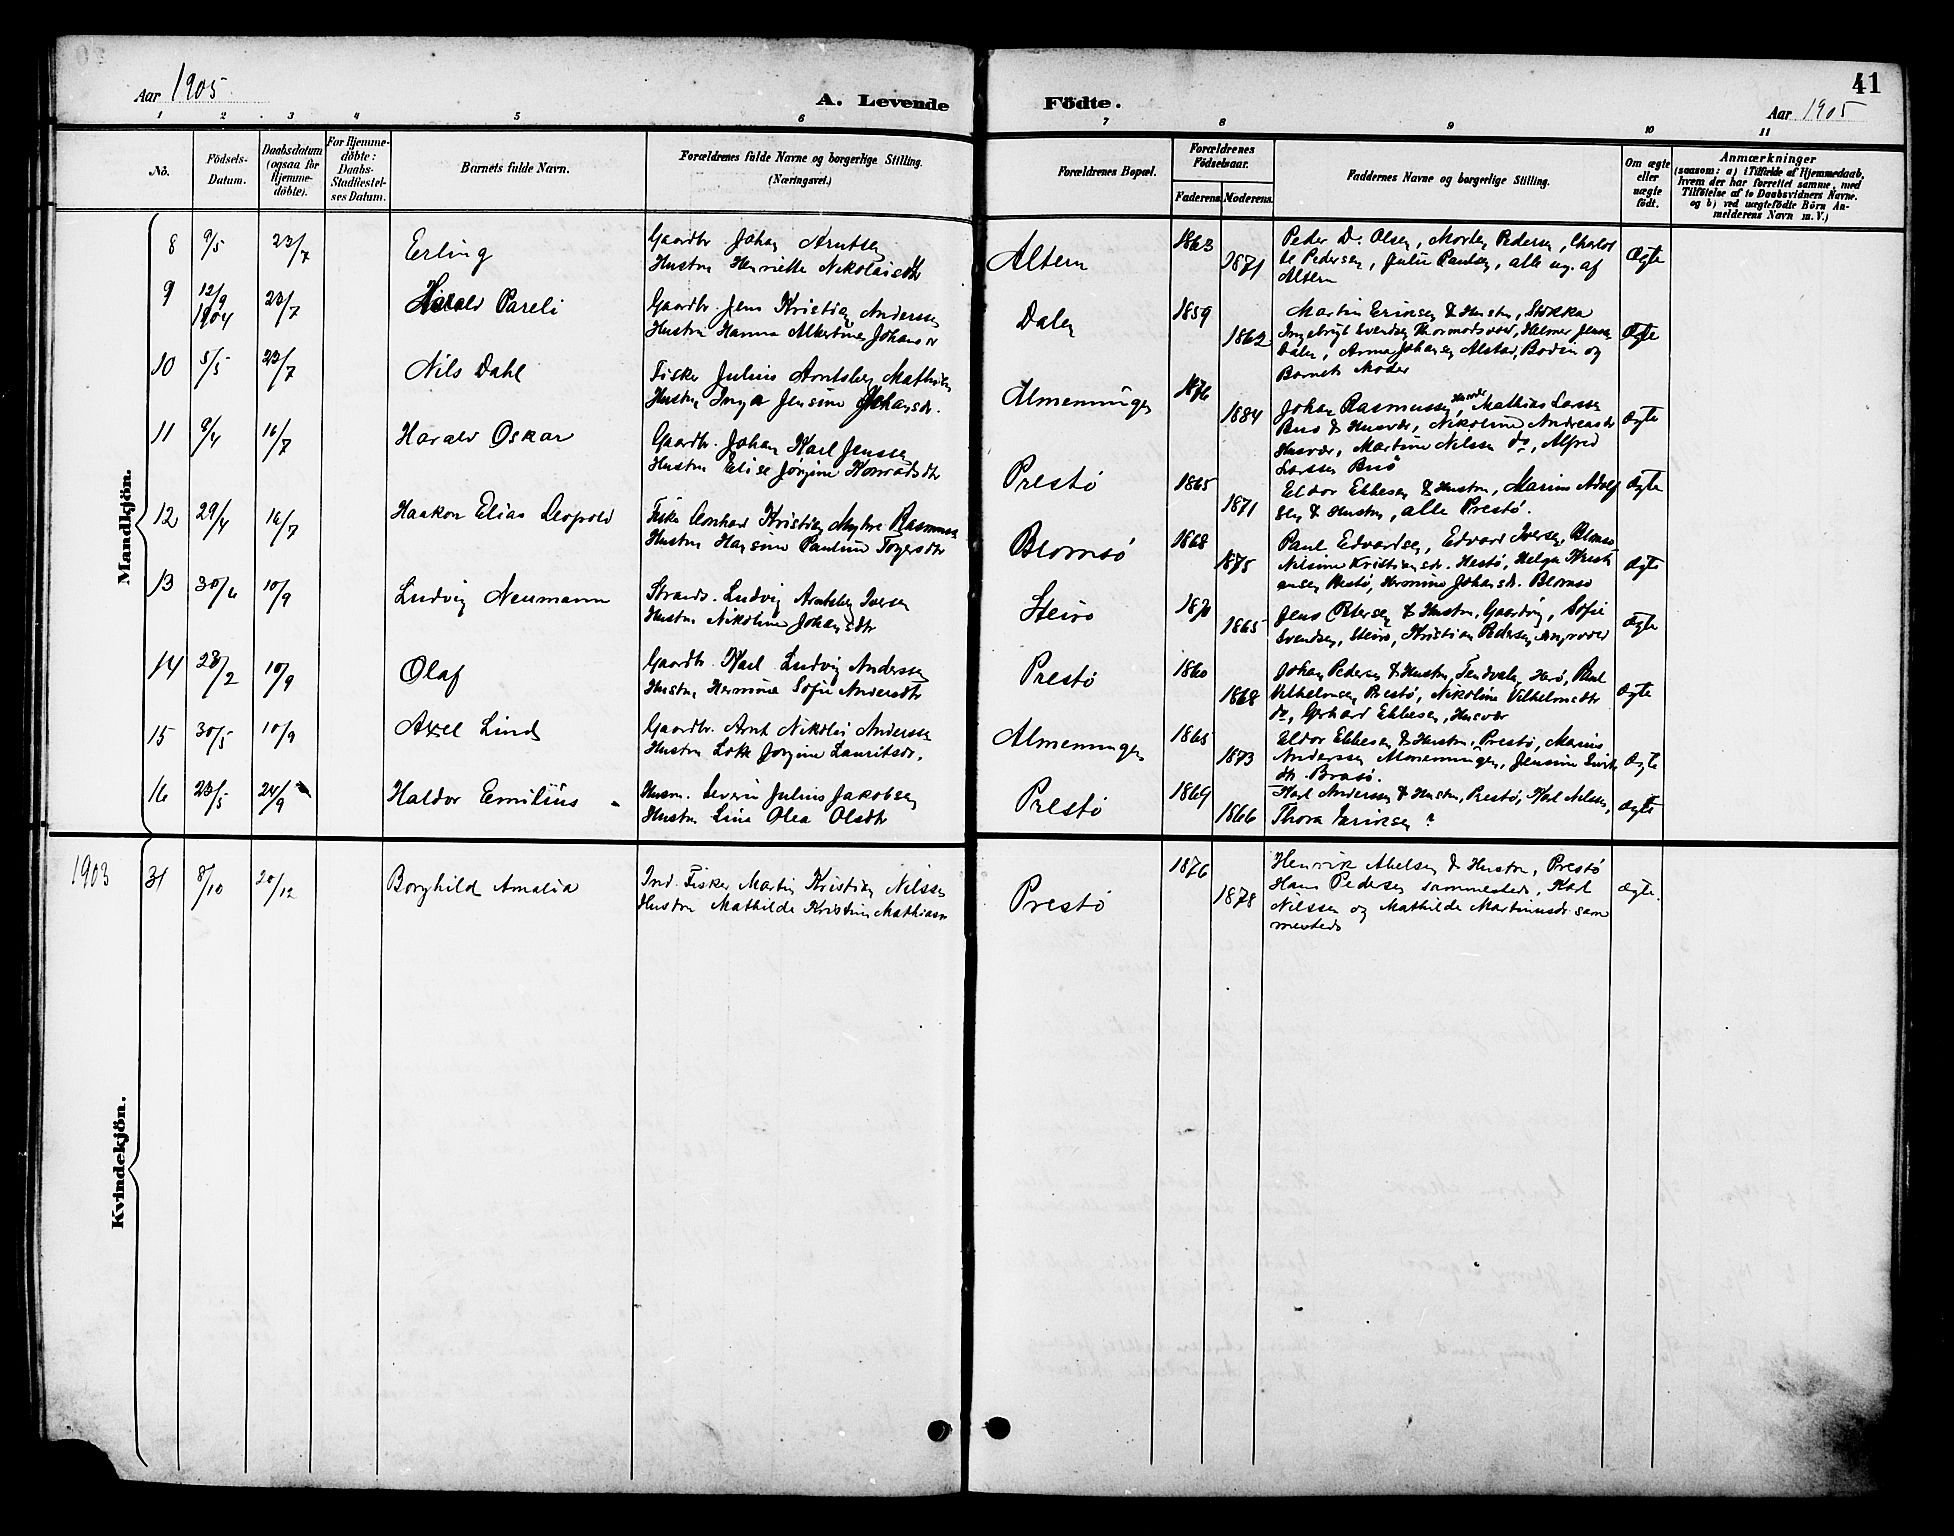 Aar 1905 A. Levende Födte. Aar 1905 41
1 2 3 4 5 6 7 8 9 10 11
No. Födsels-Datum. Daabsdatum (ogsaa for Hjemme-döbte). For Hjemme-döbte: Daabs-Stadfæstel-ses Datum. Barnets fulde Navn. Forældrenes fulde Navne og borgerlige Stilling. (Næringsvei.) Forældrenes Bopæl. Forældrenes Födselsaar. Faderens Moderens. Faddernes Navne og borgerlige Stilling. Om ægte eller uægte födt. Anmærkninger (saasom: a) i Tilfælde af Hjemmedaab, hvem der har forrettet samme, med Tilföielse af to Daabsvidners Navne. og b) ved uægtefödte Börn An-melderens Navn m. V.)
Mandkjön.
8 9/5 23/7 Erling Gaardbr Johan Arntsen
Hustru Henriette Nikolaisdtr
Altern 1863 1871
Peder D. Olsen, Morten Pedersen, Charlot
te Pedersen, Julie Paulsen, alle ug. af
Altern
Ægte
9 12/9 1904 23/7 Harald Pareli Gaardbr. Jens Kristian Anderssen
Hustru Hanna Albertine Johansdr
Dalen 1859 1862
Martin Eriksen & Hustru, Stokka
Ingebrigt Svendsen Thormodsvær, Helmer Jenssen
Dalen, Anna Johansen Alstad, Bodin og
Barnets Moder
Ægte
10 5/5 23/7 Nils Dahl Fisker Julius Arntsberg Mathisen
Hustru Inga Jensine Johansdr.
Almenningen 1876 1884
Johan Rasmussen, Mathias Larssen
Brasø & Husvær, Nikoline Andreasdtr
Husvær, Martine Nilssen do, Alfred
Larssen Brasø
ægte
11 9/4 16/7 Harald Oskar Gaardbr. Johan Karl Jenssen
Hustru Elise Jørgine Konradsdtr
Prestø 1865 1871
Eldor Ebbesen & Hustru, Marius Adolf
sen & Hustru, alle Prestø.
ægte
12 29/4 16/7 Haakon Elias Leopold Fisker Leonhard Kristian Myhre Rasmussen
Hustru Hansine Pauline Torgersdtr
Blomsø 1868 1875
Paul Edvardsen, Edvard Iversen, Blomsø
Nilsine Kristiansdr. Hestø, Helga Kristi
ansen Hestø, Hronine Johansdr. Blomsø
ægte
13 30/6 10/9 Ludvig Neumann Strands. Ludvig Arntsberg Iversen
Hustru Nikoline Johansdtr
Steiro 1870 1865
Jens Petersen & Hustru, Gaardøy, Sofie
Svendsen, Steiro, Kristian Pedersen
ægte
14 28/2 10/9 Olaf Gaardbr. Karl Ludvig Anderssen
Hustru Hermine Sofie Andersdtr
Prestø 1860 1868
Johan Pedersen & Hustru, Tendvalen, Herø, Paul
Vilhelmsen Prestø, Nikoline Vilhelmsdtr
do, Gerhard Ebbesen, Husvær
ægte
15 30/5 10/9 Axel Lind Gaardbr. Arnt Nikolai Anderssen
Hustru Lokk Jørgine Lauritsdr.
Almenningen 1865 1873
Eldor Ebbesen & Hustru, Prestø, Marius
Anderssen Almenningen, Jensine
dr. Brasø.
ægte
16 23/5 24/9 Haldor Emilius Husm. Severin Julius Jakobsen
Hustru Lina Olea Olsdtr
Prestø 1869 1866
Karl Anderssen & Hustru, Prestø, Karl Nilssen,
Thora Eriksen ?
ægte
Kvindekjön.
1903 31 8/10 20/12 Borghild Amalia Ind. Fisker Martin Kristian Nilssen
Hustru Mathilde Kristine Mathiasdr
Prestø 1876 1878
Henrik Abelsen & Hustru, Prestø
Hans Pedersen sammesteds, Karl
Nilssen og Mathilde Martinusdr. sam
mesteds
ægte.